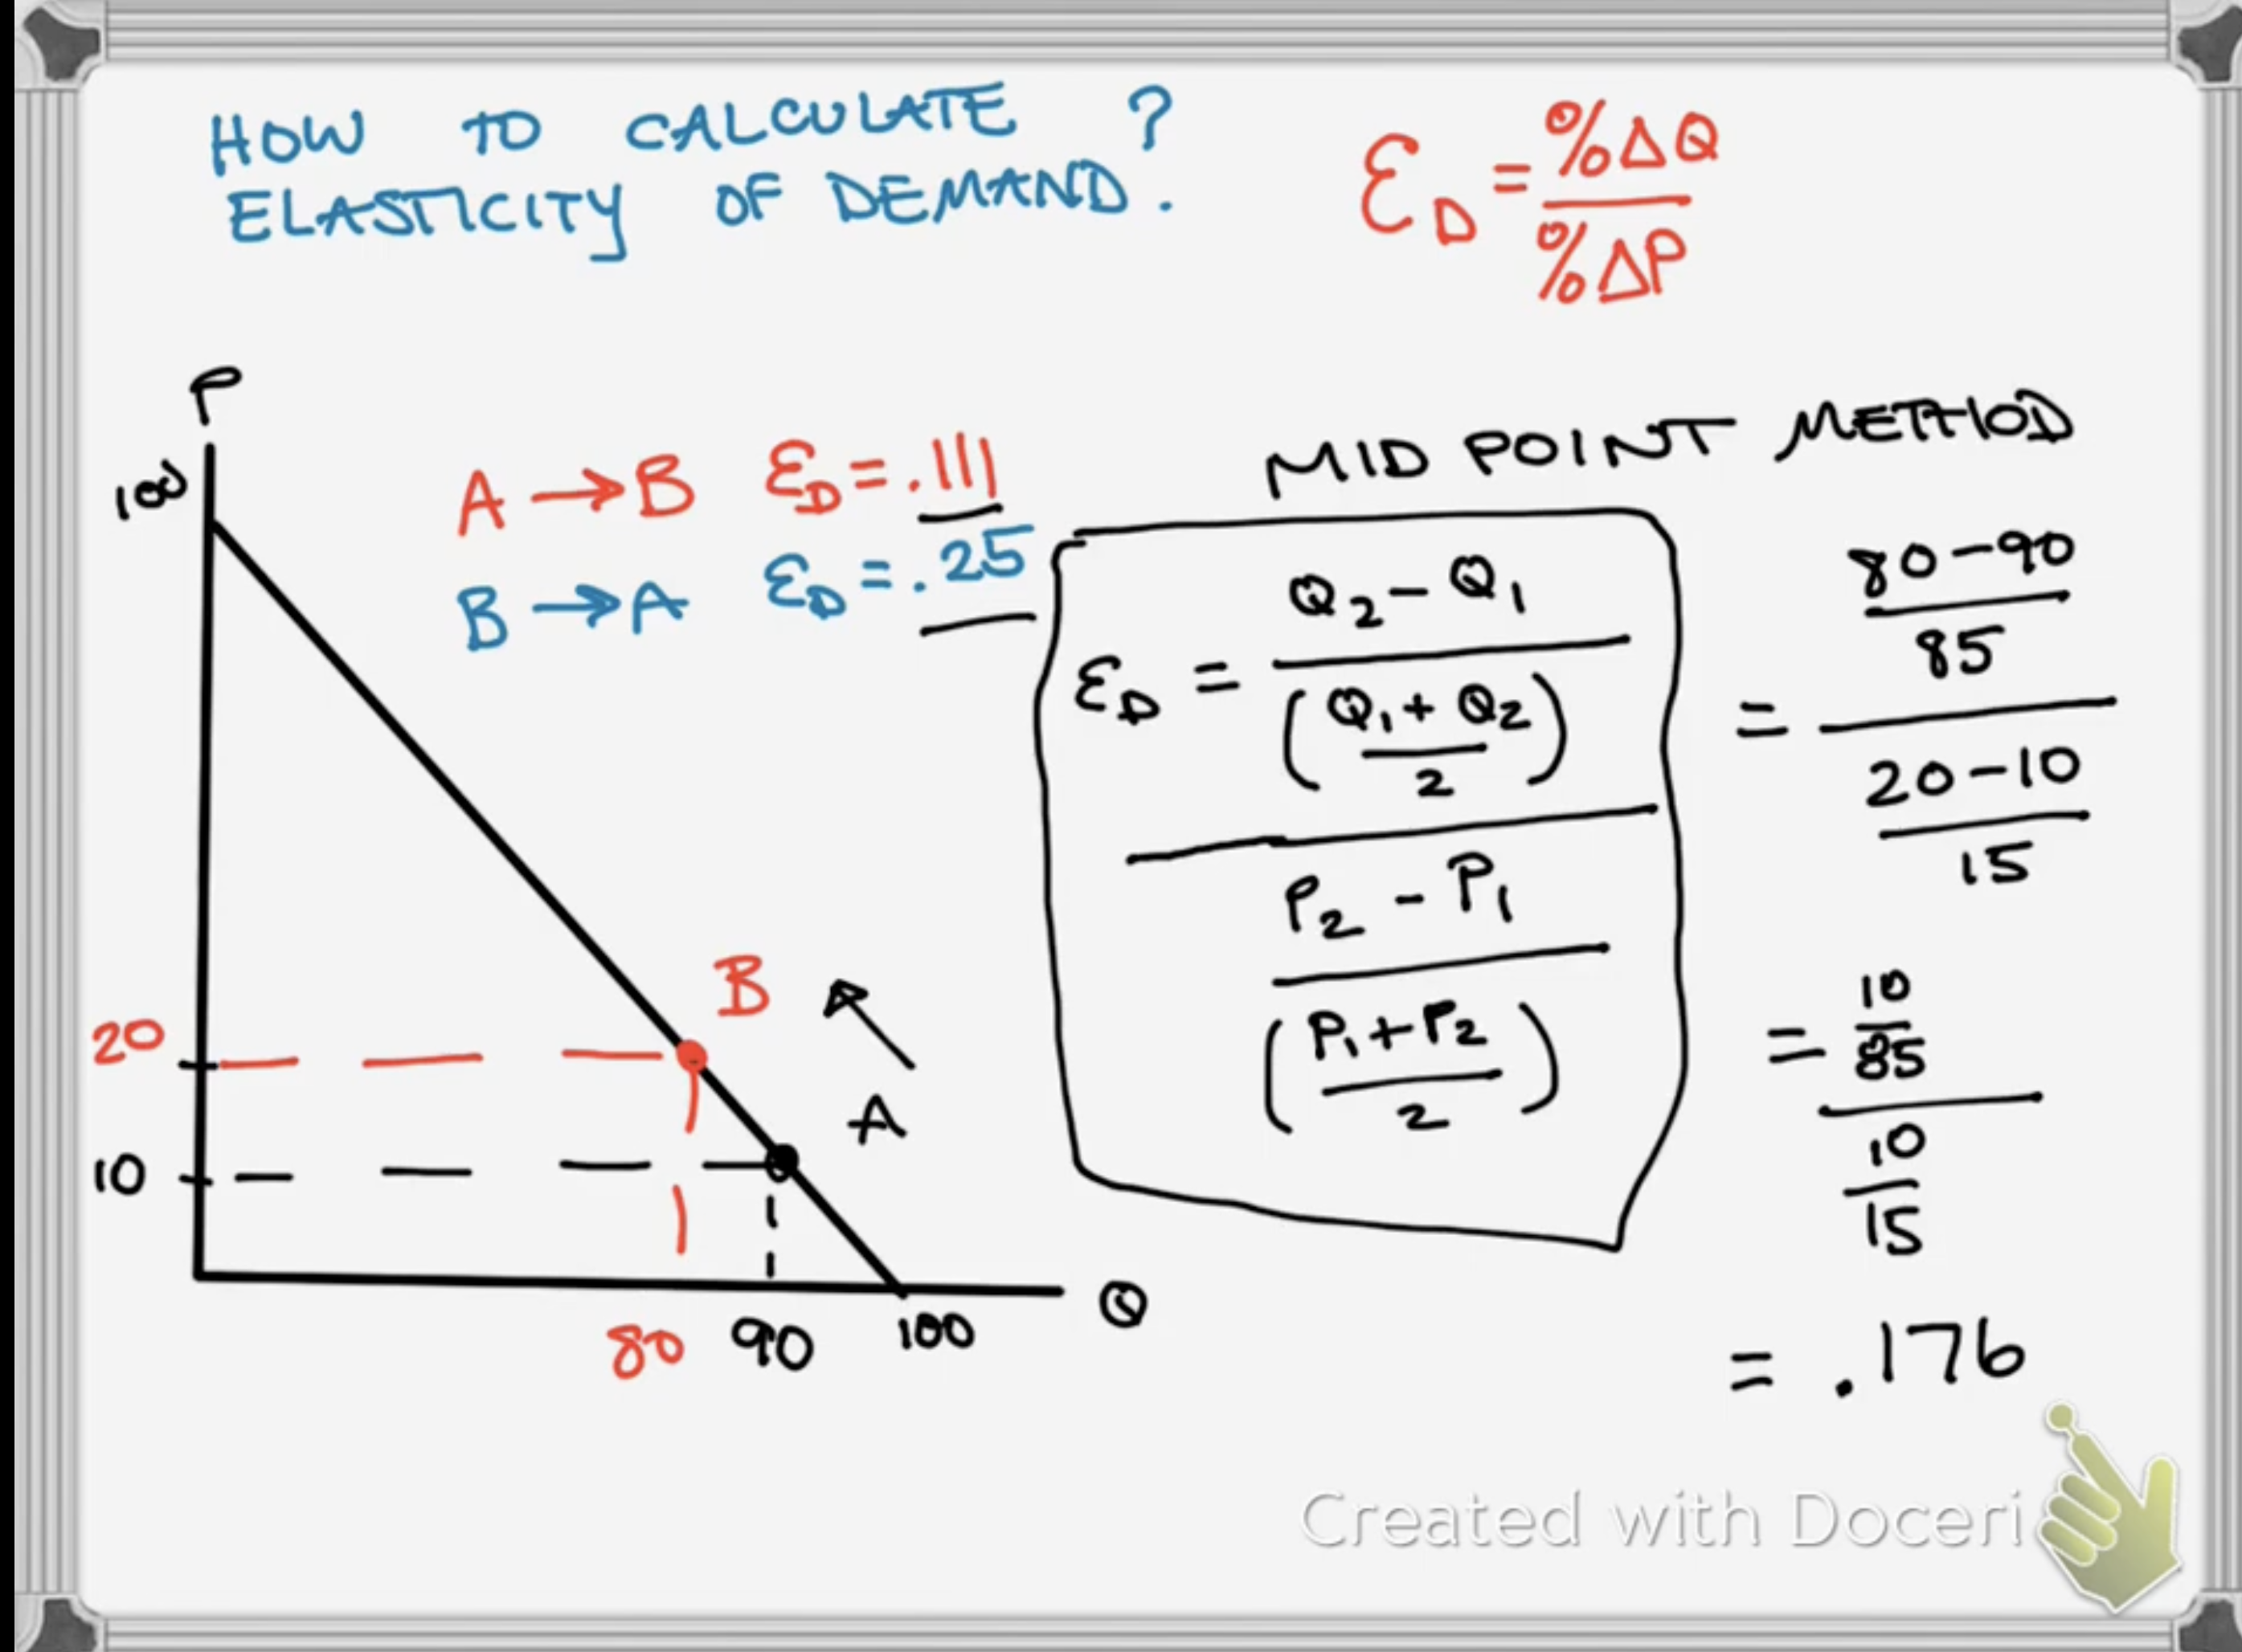 HOW TO CALCULATE ?
ELASTICITY OF DEMAND.
ℰD = %ΔQ
%ΔP
P
100
A → B ℰD = .111
B → A ℰD = .25
20
10
B
A
80 90 100
Q
MID POINT METHOD
Q2 - Q1
ℰD =
(Q1 + Q2
2)
P2 - P1
(P1 + P2
2)
80-90
85
=
20-10
15
= 10
85
10
15
= .176
Created with Doceri